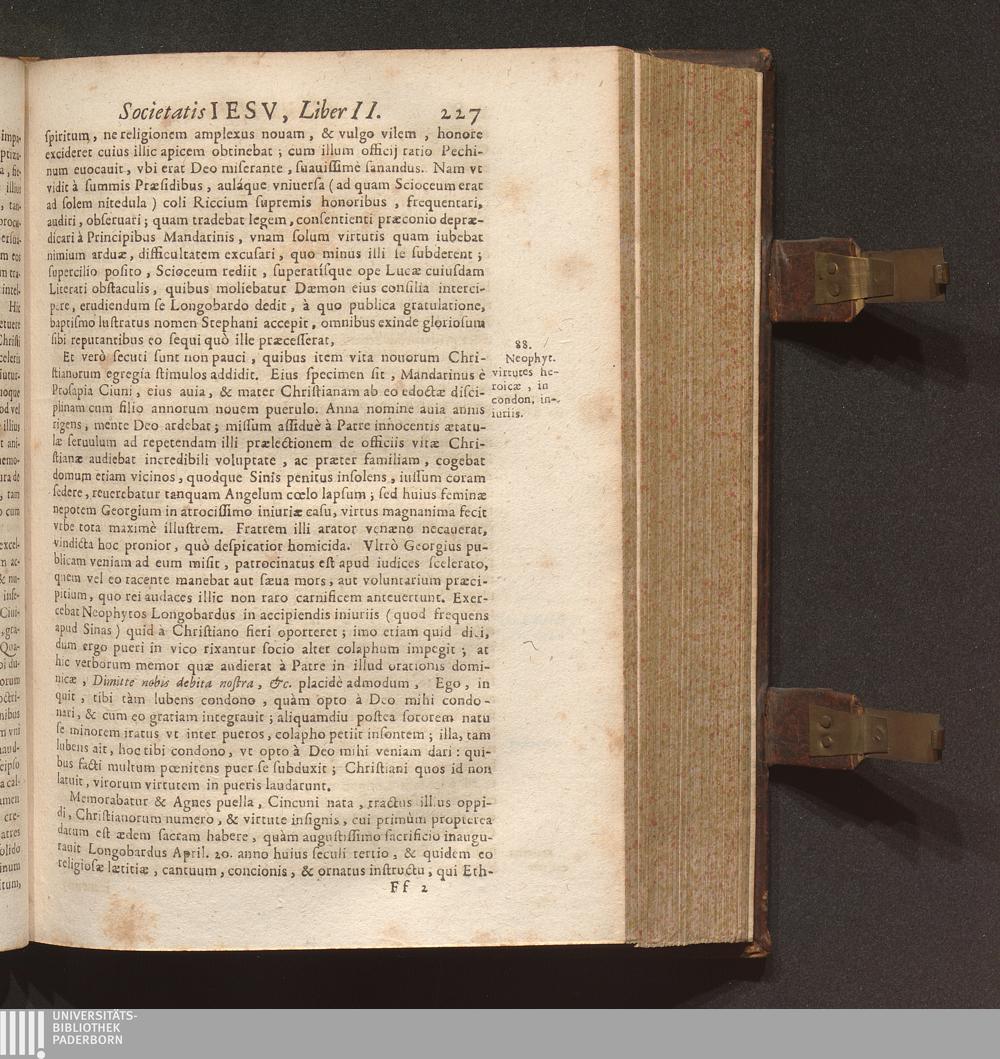 Societatis IESV, Liber II. 227
ſpiritum, ne religionem amplexus nouam, & vulgo vilem, honore
excideret cuius illic apicem obtinebat; cum illum officij ratio Pechi-
num euocauit, vbi erat Deo miſerante, ſuauiſſimè ſanandus. Nam vt
vidit à ſummis Præſidibus, auláque vniuerſa (ad quam Scioceum erat
ad ſolem nitedula) coli Riccium ſupremis honoribus, frequentari,
audiri, obſeruari; quam tradebat legem, conſentienti præconio depræ-
dicari à Principibus Mandarinis, vnam ſolum virtutis quam iubebat
nimium arduæ, difficultatem excuſari, quo minus illi ſe ſubderent;
ſupercilio poſito, Scioceum rediit, ſuperatiſque ope Lucæ cuiuſdam
Literati obſtaculis, quibus moliebatur Dæmon eius conſilia interci-
pere, erudiendum ſe Longobardo dedit, à quo publica gratulatione,
baptiſmo luſtratus nomen Stephani accepit, omnibus exinde glorioſum
ſibi reputantibus eo ſequi quò ille præceſſerat,
Et verò ſecuti ſunt non pauci, quibus item vita nouorum Chri-
ſtianorum egregia ſtimulos addidit. Eius ſpecimen ſit, Mandarinus è
Proſapia Ciuni, eius auia, & mater Chriſtianam ab eo edoctæ diſci-
plinam cum filio annorum nouem puerulo. Anna nomine auia annis
rigens, mente Deo ardebat; miſſum aſſiduè à Patre innocentis ætatu-
læ ſeruulum ad repetendam illi prælectionem de officiis vitæ Chri-
ſtianæ audiebat incredibili voluptate, ac præter familiam, cogebat
domum etiam vicinos, quodque Sinis penitus inſolens, iuſſum coram
ſedere, reuerebatur tanquam Angelum cœlo lapſum; ſed huius feminæ
nepotem Georgium in atrociſſimo iniuriæ caſu, virtus magnanima fecit
vrbe tota maximè illuſtrem. Fratrem illi arator venæno necauerat,
vindicta hoc pronior, quò deſpicatior homicida. Vltrò Georgius pu-
blicam veniam ad eum miſit, patrocinatus eſt apud iudices ſcelerato,
quem vel eo tacente manebat aut ſæua mors, aut voluntarium præci-
pitium, quo rei audaces illic non raro carnificem anteuertunt. Exer-
cebat Neophytos Longobardus in accipiendis iniuriis (quod frequens
apud Sinas) quid à Chriſtiano fieri oporteret; imo etiam quid dici,
dum ergo pueri in vico rixantur ſocio alter colaphum impegit; at
hic verborum memor quæ audierat à Patre in illud orationis domi-
nicæ, Dimitte nobis debita noſtra, &c. placidè admodum, Ego, in
quit, tibi tàm lubens condono, quàm opto à Deo mihi condo-
nari, & cum eo gratiam integrauit; aliquamdiu poſtea ſororem natu
ſe minorem iratus vt inter pueros, colapho petiit inſontem; illa, tam
lubens ait, hoc tibi condono, vt opto à Deo mihi veniam dari: qui-
bus facti multum pœnitens puer ſe ſubduxit; Chriſtiani quos id non
latuit, virorum virtutem in pueris laudarunt.
Memorabatur & Agnes puella, Cincuni nata, tractus illius oppi-
di, Chriſtianorum numero, & virtute inſignis, cui primùm propterea
datum eſt ædem ſacram habere, quàm auguſtiſſimo ſacrificio inaugu-
rauit Longobardus April. 20. anno huius ſeculi tertio, & quidem eo
religioſæ lætitiæ, cantuum, concionis, & ornatus inſtructu, qui Eth-
Ff 2
88.
Neophyt.
virtutes he-
roicæ, in
condon, in-
iuriis.
UNIVERSITÄTS-
BIBLIOTHEK
PADERBORN